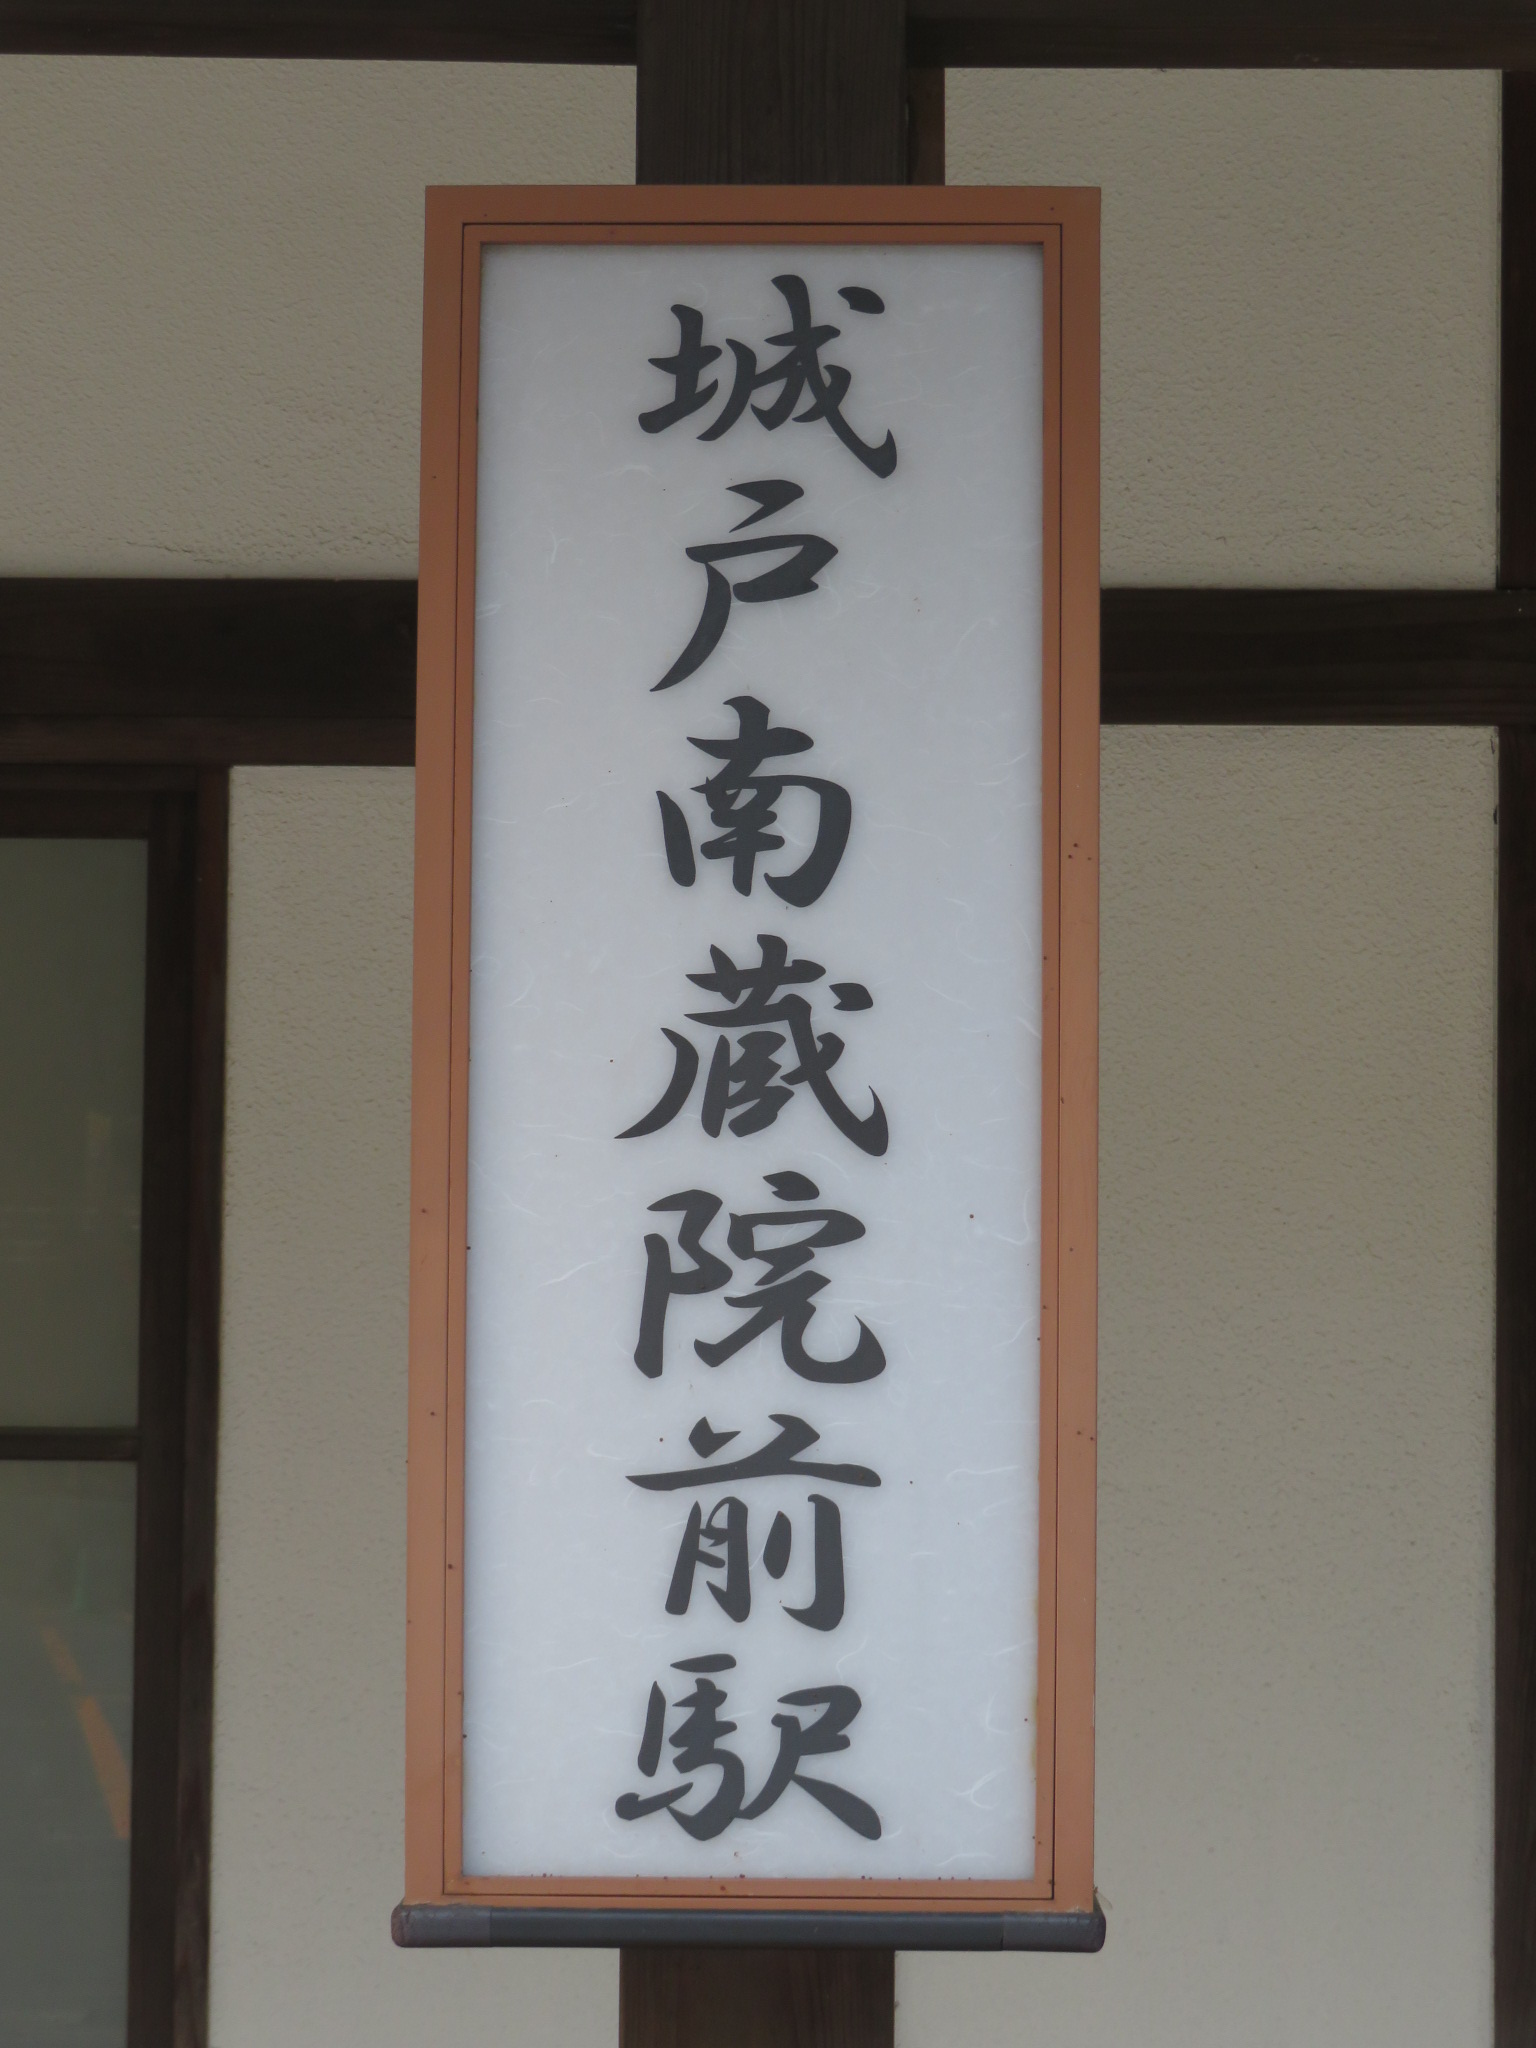 城戸南蔵院前駅